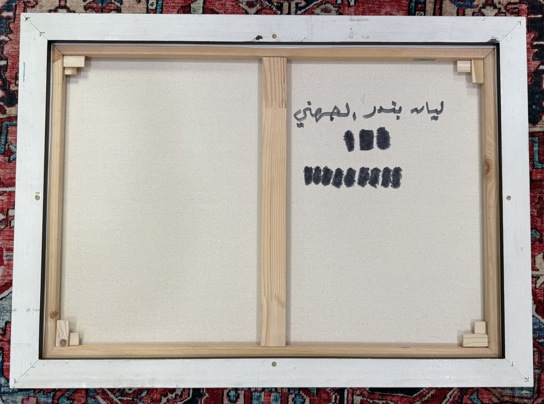 ليان بندر الجهني